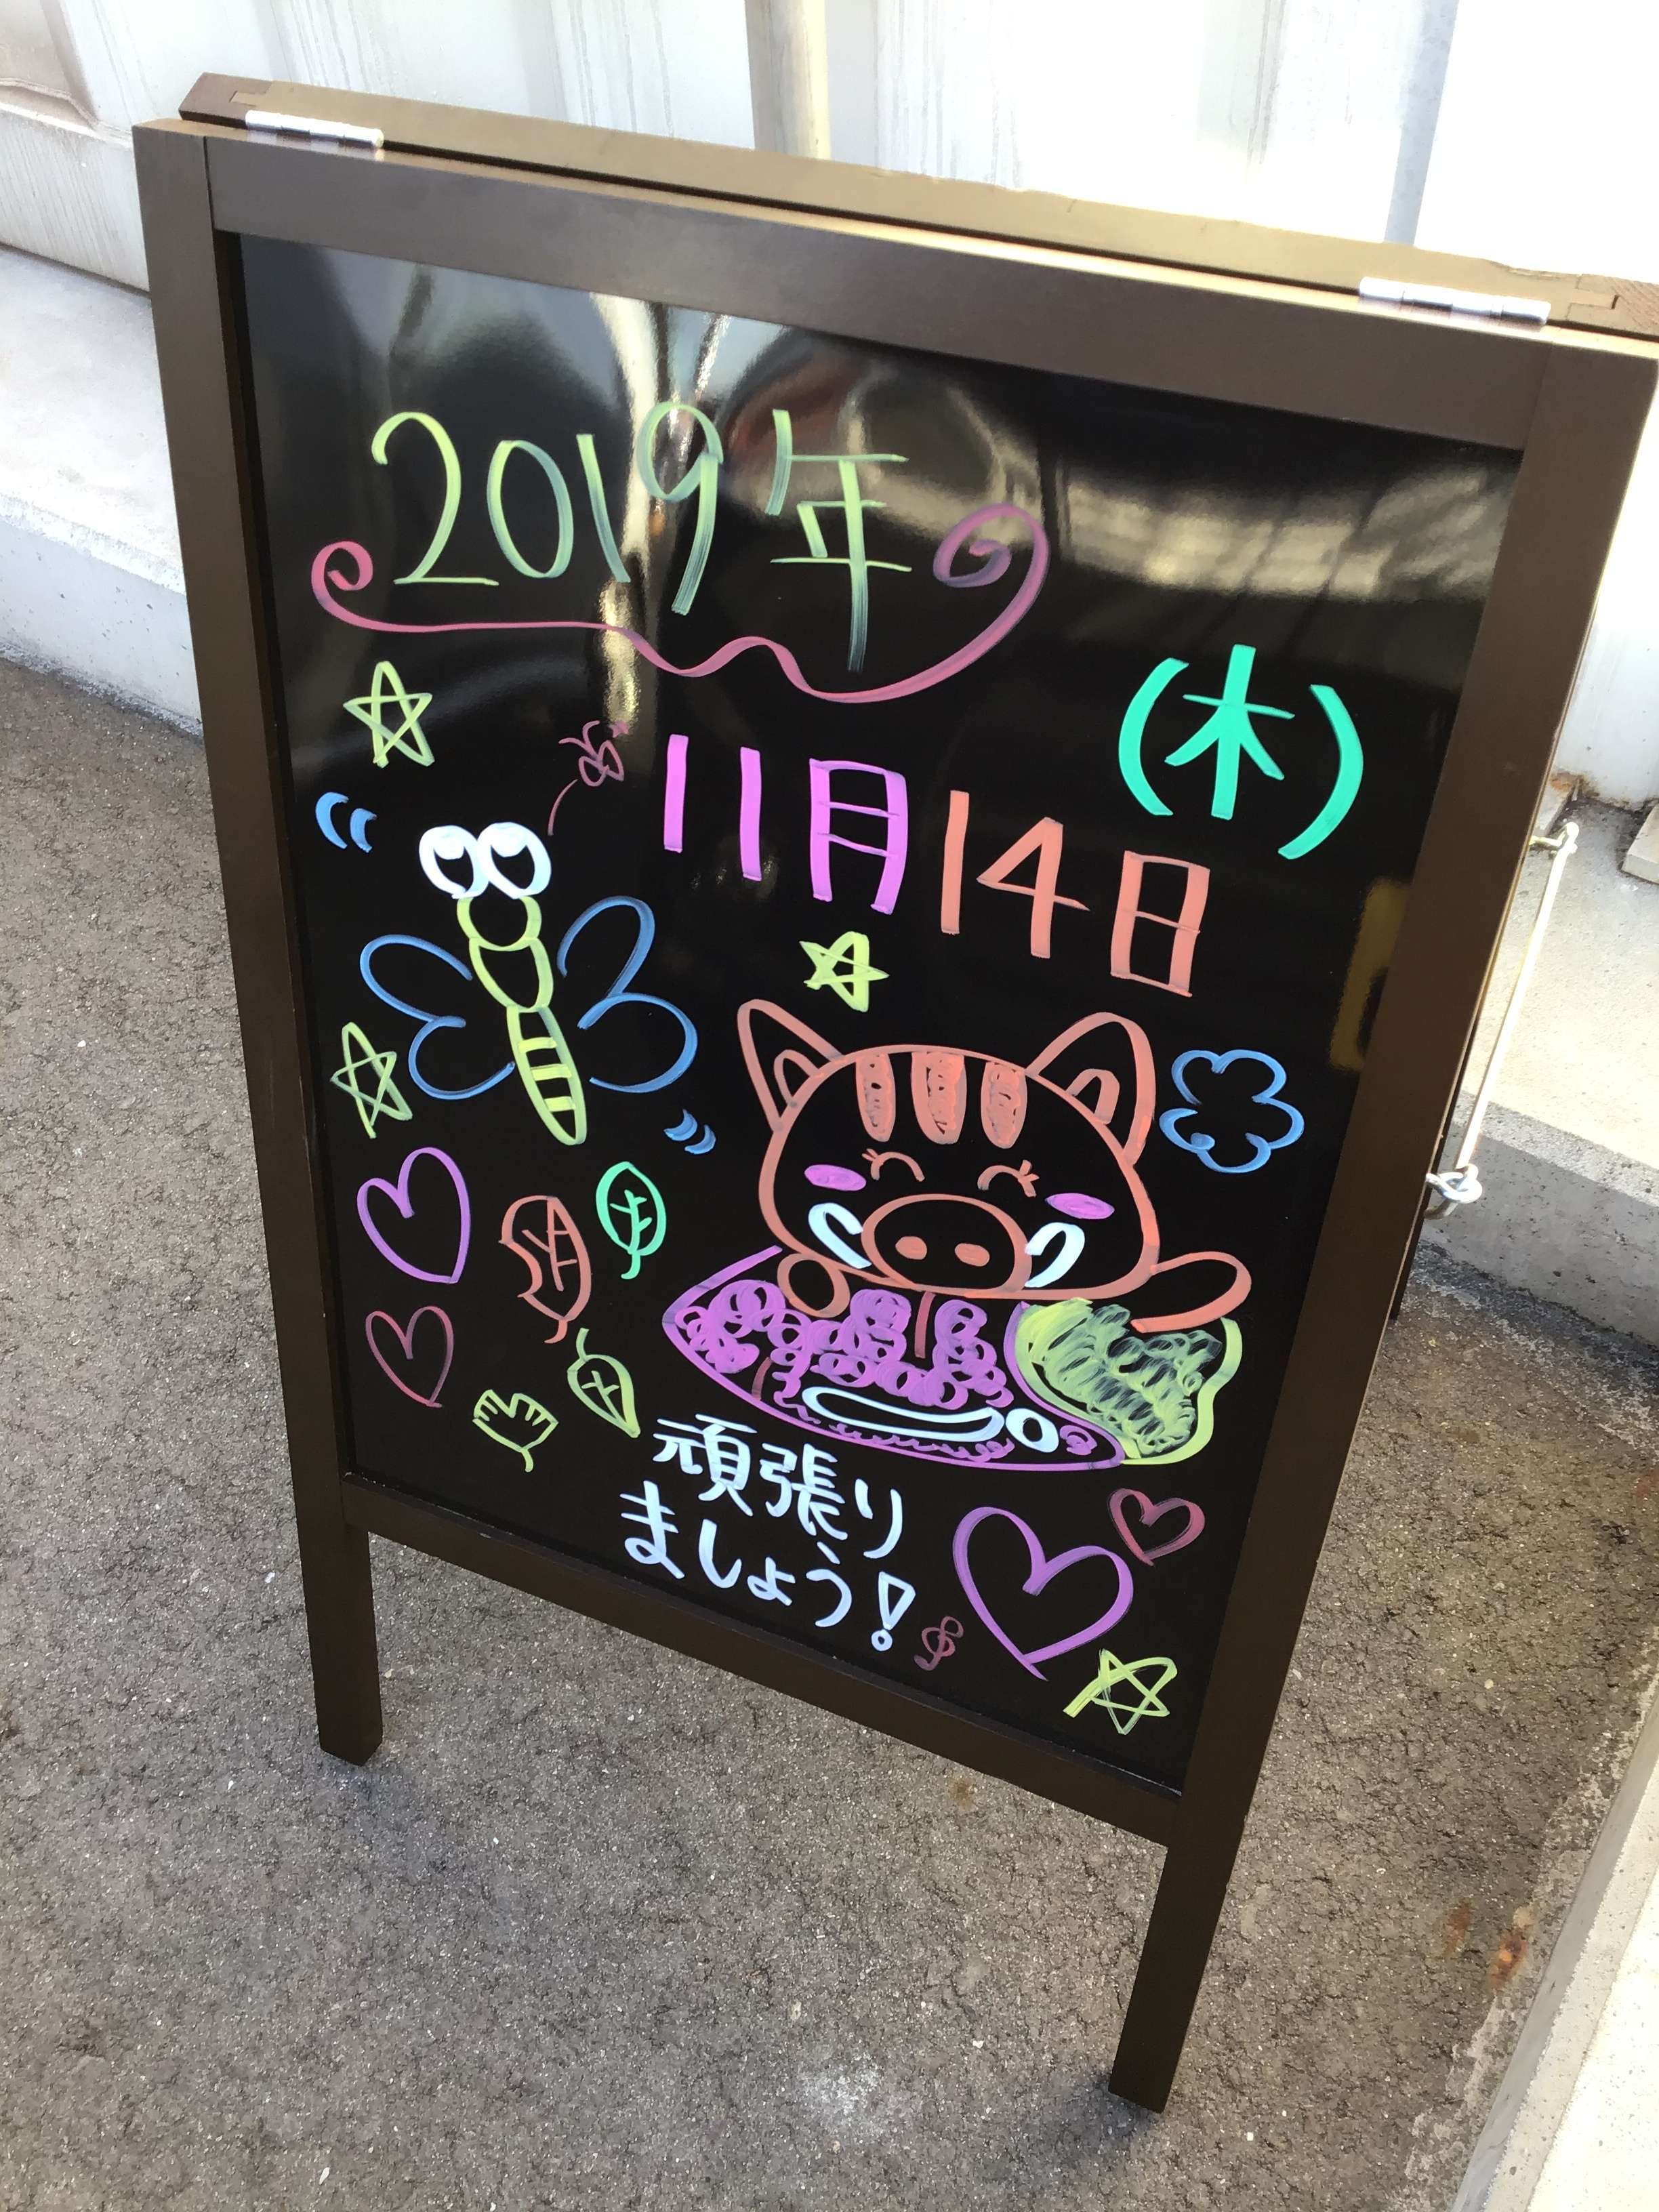 2019年
11月14日(木)
頑張り
ましょう!